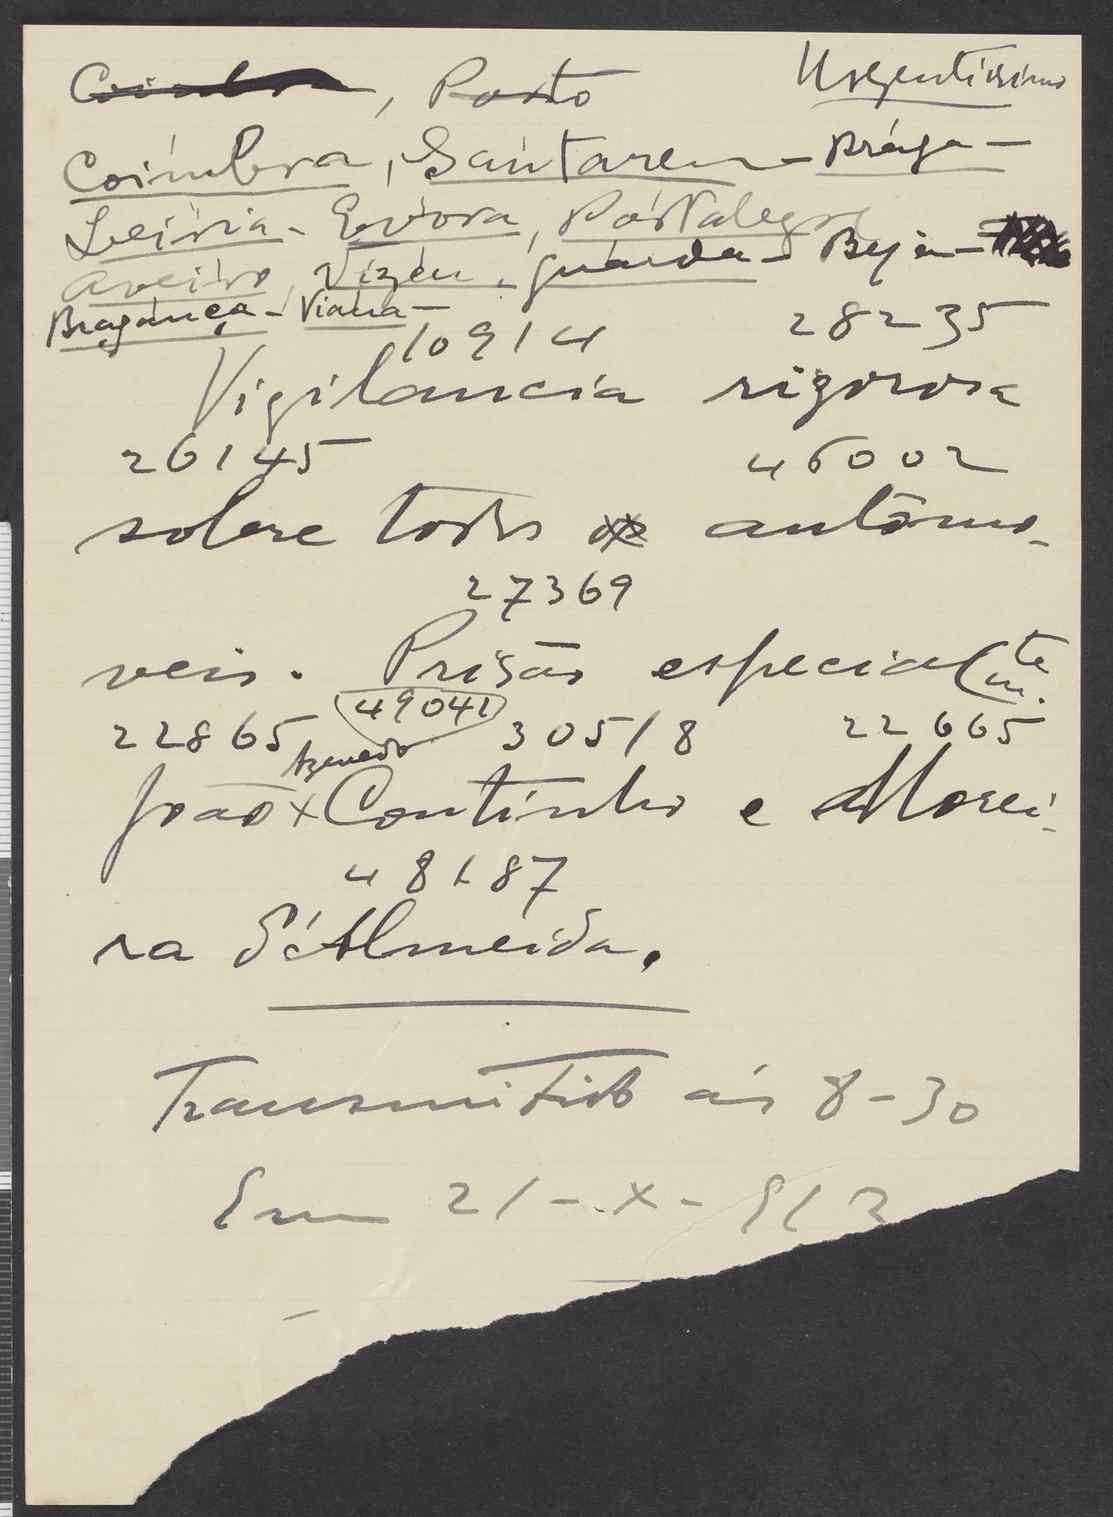 Coimbra, Porto Urgentissimo
Coimbra, Santarem - Braga -
Leiria - Evora, Portalegre
Aveiro, Vizeu, Guarda - Beja -
Bragança - Viana -
10914 28235
Vigilancia rigorosa
26145 46002
sobre todos os automo-
27369
veis. Prisão especialm.te
22865 49041 30518 22665
Azevedo
João x Coutinho e Morei-
48187
ra d'Almeida.
Transmitido ás 8-30
Em 21-X-913